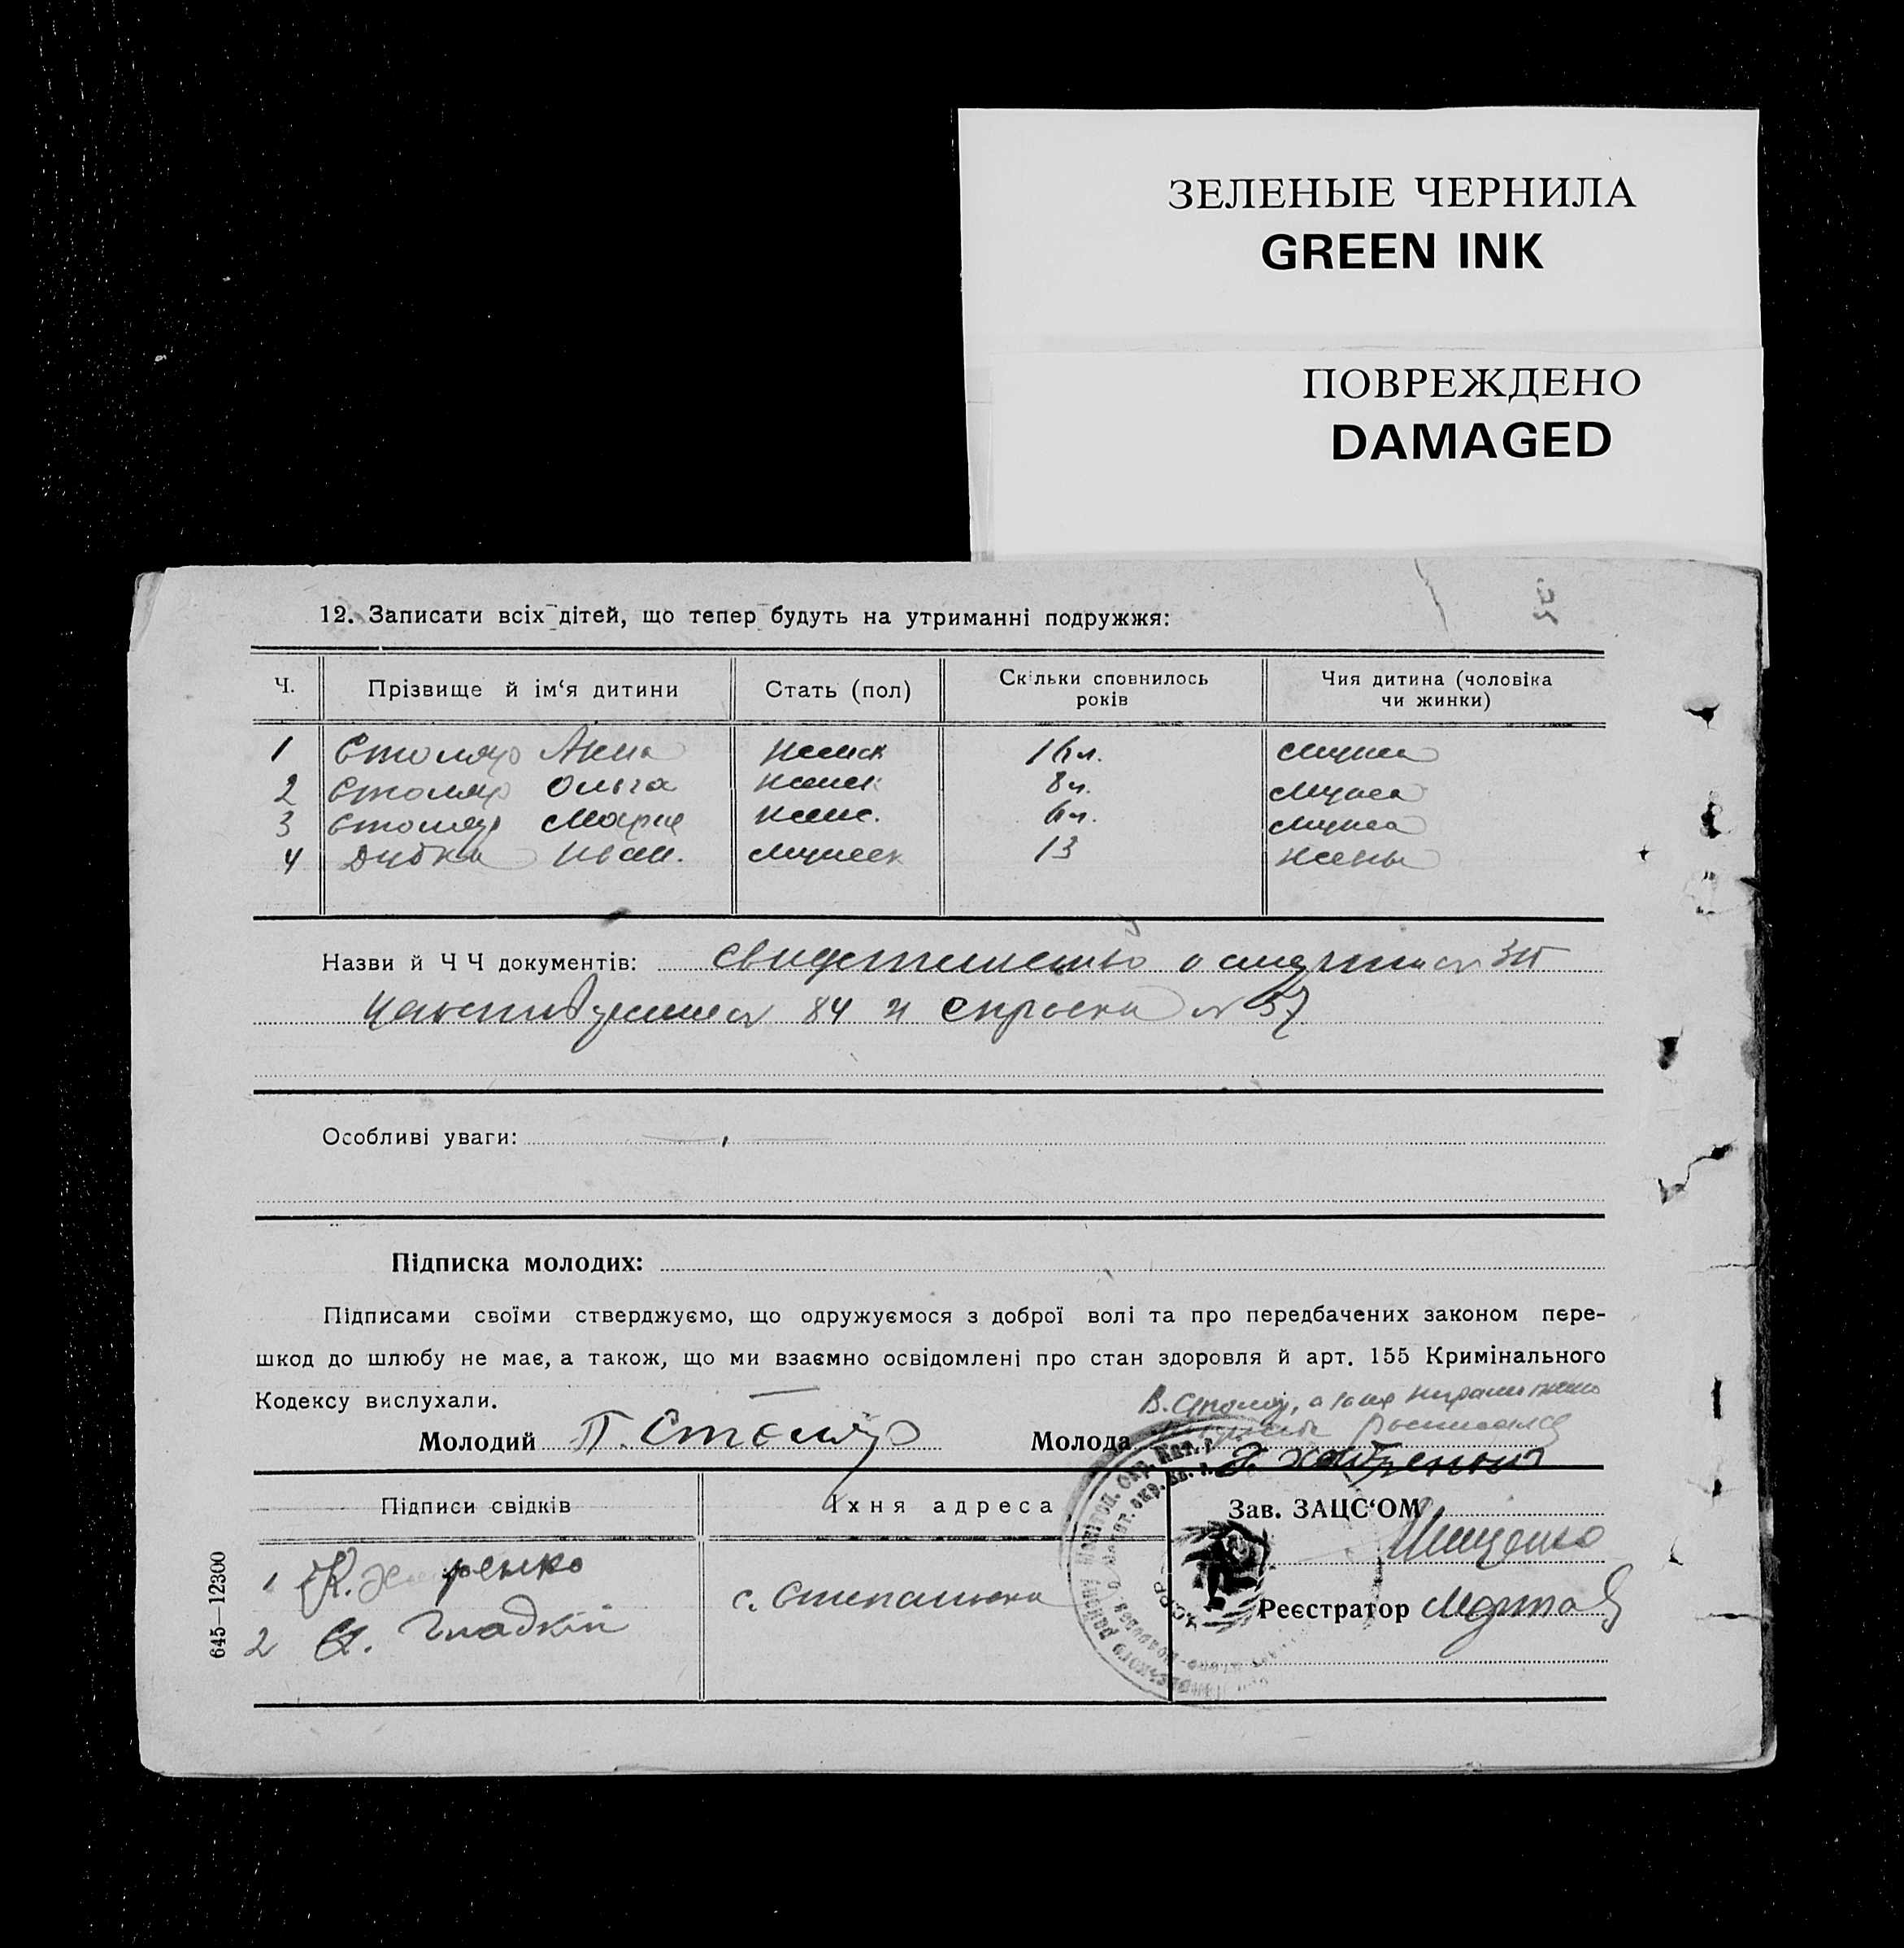 ЗЕЛЕНЫЕ ЧЕРНИЛА
GREEN INK
ПОВРЕЖДЕНО
DAMAGED
12. Записати всіх дітей, що тепер будуть на утриманні подружжя:
Ч. Прізвище й ім‘я дитини Стать (пол) Скільки сповнилось років Чия дитина (чоловіка чи жинки)
1 Столяр Анна женск 16 л. мужа
2 Столяр Ольга женск 8 л. мужа
3 Столяр Мария женс. 6 л. мужа
4 Иван. мужеск 13 жены
Назви й Ч Ч документів: свидетельство о
84 и справка № 57
Особливі уваги:
Підписка молодих:
Підписами своїми стверджуємо, що одружуємося з доброї волі та про передбачених законом пере-
шкод до шлюбу не має, а також, що ми взаємно освідомлені про стан здоровля й арт. 155 Кримінального
Кодексу вислухали.
В. Столяр, а за неграмотную
расписался
Молодий П. Столяр Молода
Підписи свідків Їхня адреса Зав. ЗАЦС‘ОМ
1 К.
с. Степановка
Реєстратор
2 Гладкій
645—12300